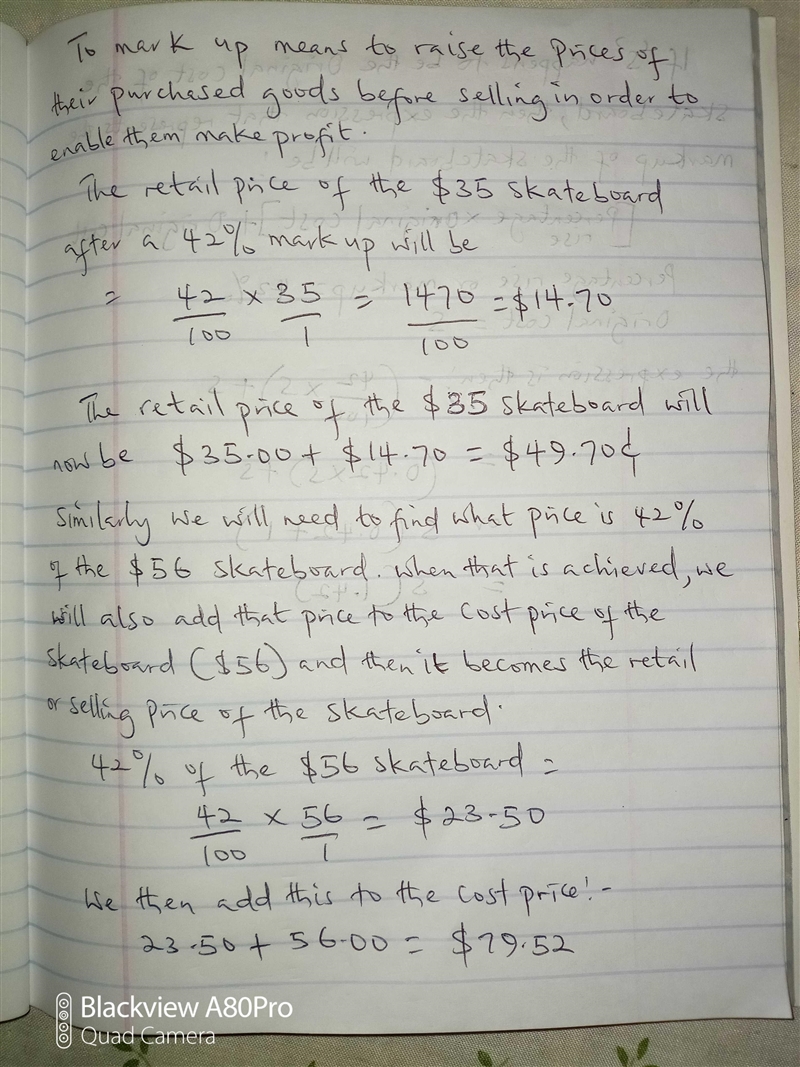 To mark up means to raise the prices of
their purchased goods before selling in order to
enable them make profit.
The retail price of the $35 skateboard
after a 42% mark up will be
= 42/100 × 35/1 = 1470/100 = $14.70
The retail price of the $35 skateboard will
now be $35.00 + $14.70 = $49.70¢
Similarly we will need to find what price is 42%
of the $56 skateboard. When that is achieved, we
will also add that price to the cost price of the
skateboard ($56) and then it becomes the retail
or selling price of the skateboard.
42% of the $56 skateboard =
42/100 × 56/1 = $23.50
We then add this to the cost price:-
23.50 + 56.00 = $79.52
Blackview A80Pro
Quad Camera